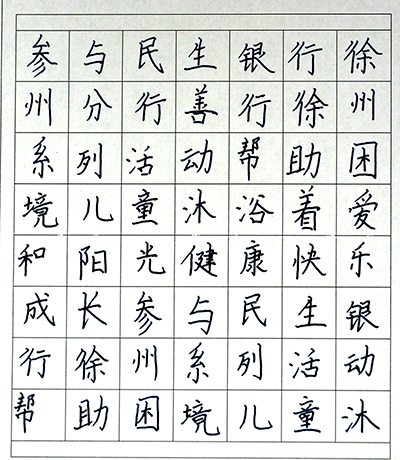 参与民生银行徐
州分行善行徐州
系列活动帮助困
境儿童沐浴着爱
和阳光健康快乐
成长参与民生银
行徐州系列活动
帮助困境儿童沐